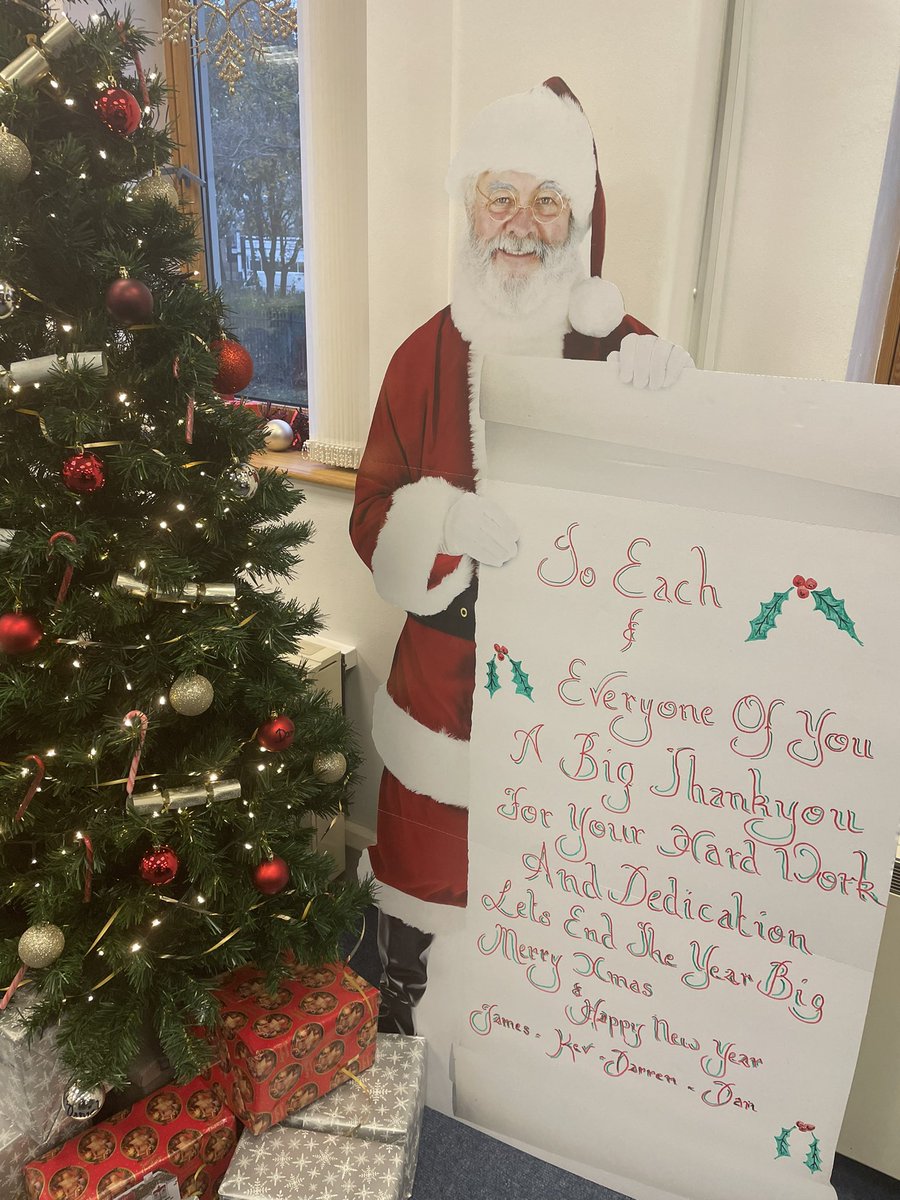 To Each
&
Everyone Of You
A Big Thankyou
For Your Hard Work
And Dedication
Lets End The Year Big
Merry Xmas
& Happy New Year
James - Kev - Darren - Dan